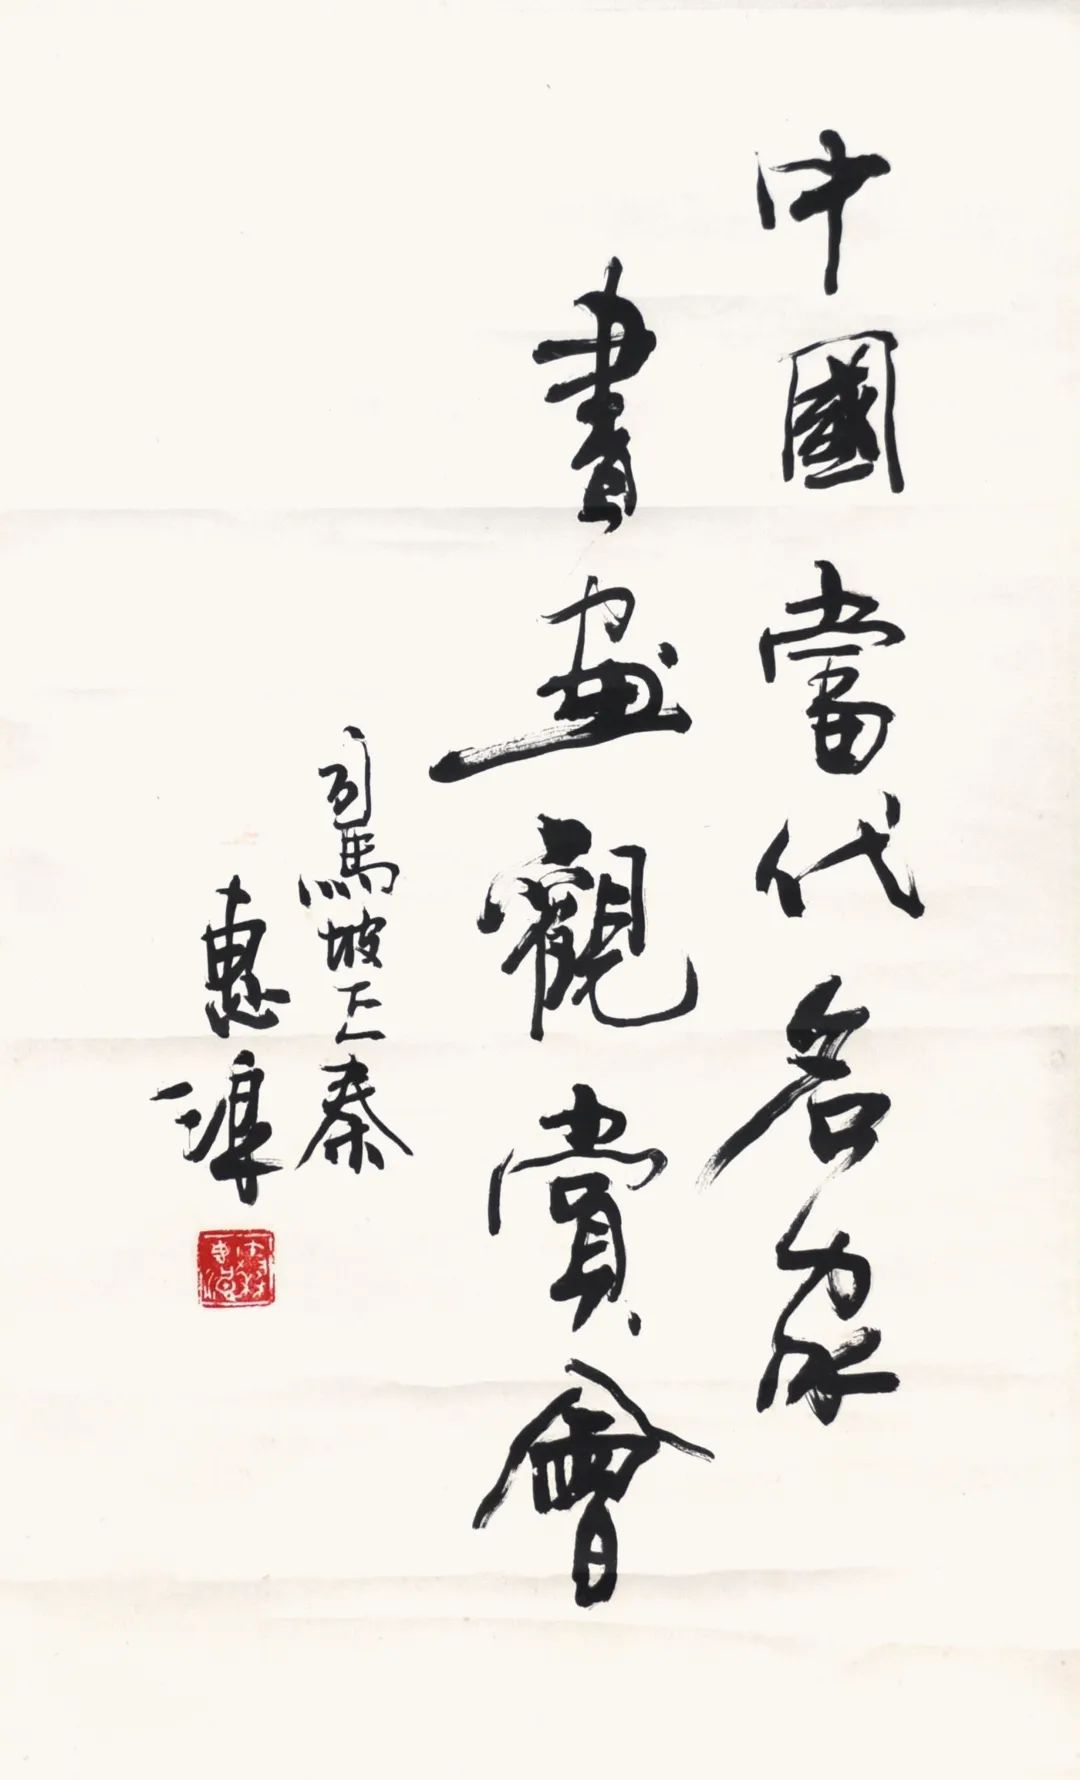 中國當代名家
書畫觀賞會
司馬坡秦
惠